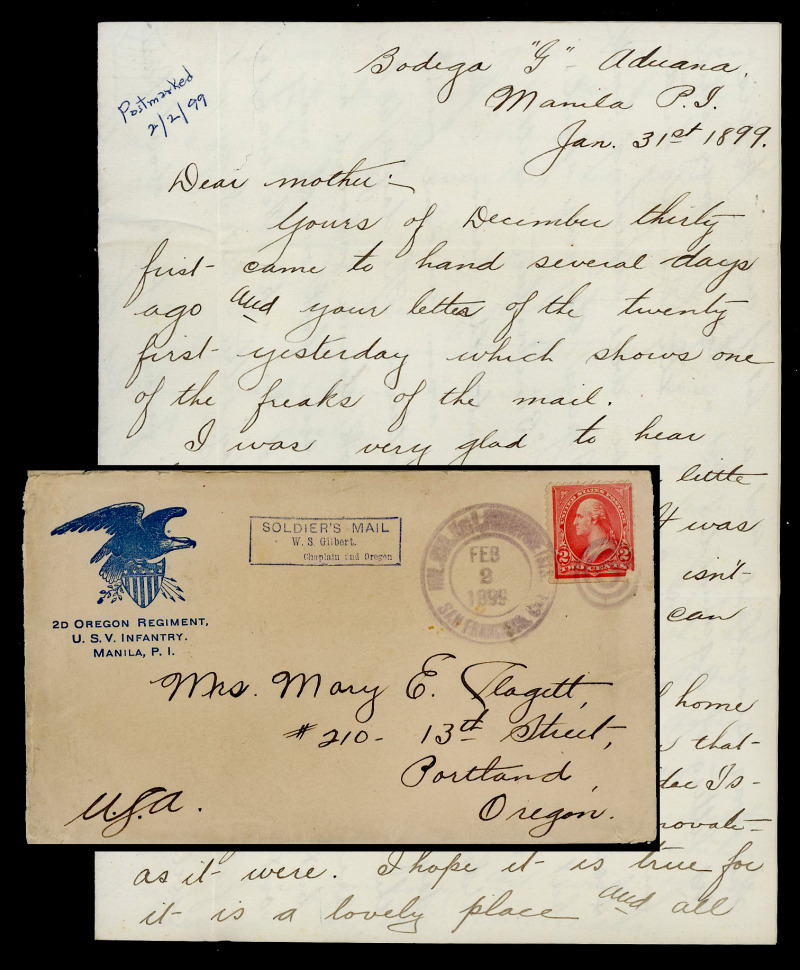 Postmarked
2/2/99
Bodega "G" - Aduana,
Manila P.I.
Jan. 31st 1899.
Dear mother:-
Yours of December thirty
first- came to hand several days
ago and your letter of the twenty
first- yesterday which shows one
of the freaks of the mail.
I was very glad to hear
little
It was
isn't-
can
home
that-
Is-
as it were. I hope it is true for
it is a lovely place and all
2D OREGON REGIMENT,
U. S. V. INFANTRY.
MANILA, P. I.
SOLDIER'S MAIL
W. S. Gilbert.
Chaplain 2nd Oregon
FEB
2
1899
SAN FRANCISCO, CAL.
UNITED STATES POSTAGE
2 2
TWO CENTS
Mrs. Mary E. Flagett,
#210- 13th Street,
Portland,
Oregon.
U.S.A.